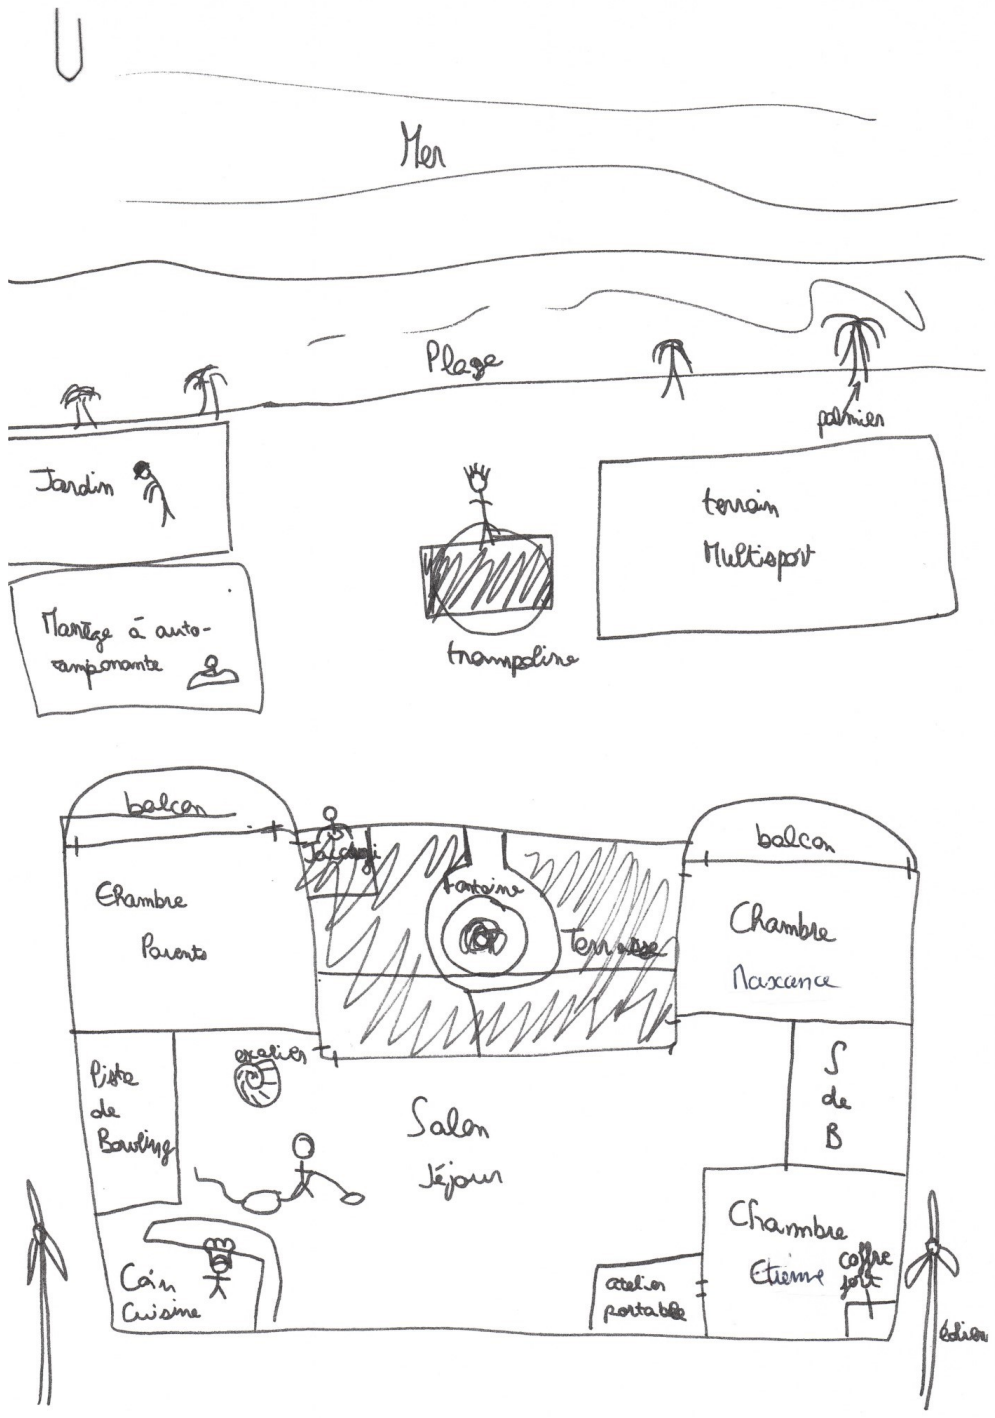 Mer
Plage
palmier
Jardin
terrain
Multisport
Manège à auto-
tamponante
trampoline
balcon
balcon
Jacuzzi
Fontaine
Terrasse
Chambre
Parents
Chambre
Maxence
escalier
Piste
de
Bowling
S
de
B
Salon
Séjour
Chambre
Etienne
coffre
fort
Coin
Cuisine
atelier
portable
éolien